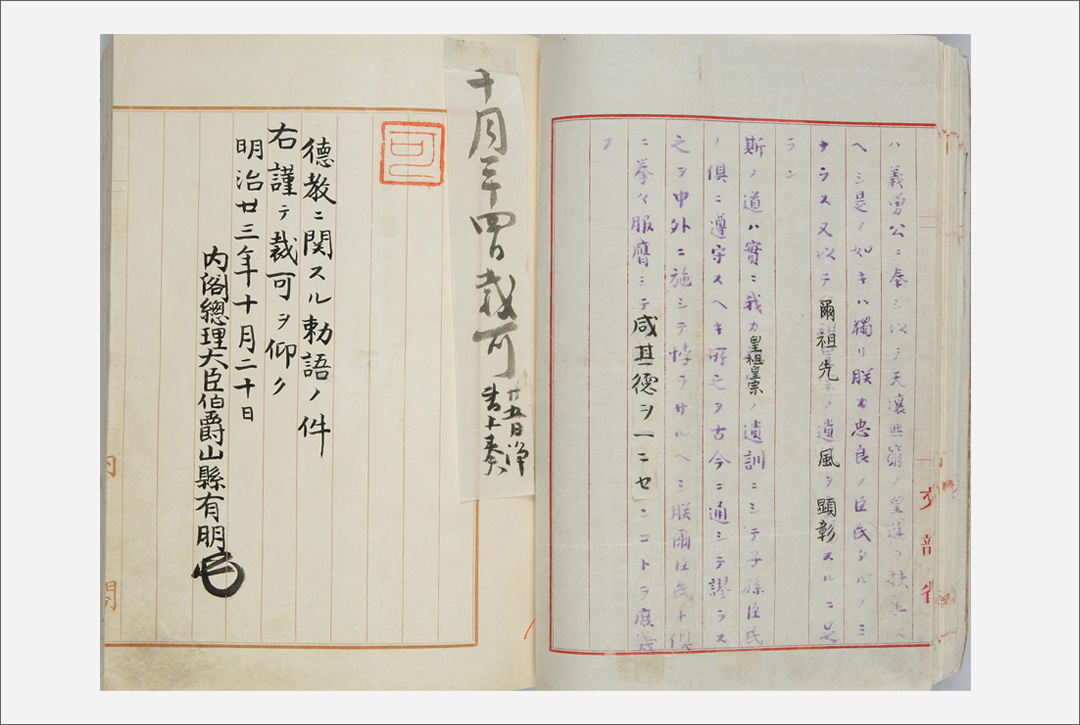 文部省
ハ義勇公ニ奉シ以テ天壤無窮ノ皇運ヲ扶翼ス
ヘシ是ノ如キハ獨リ朕カ忠良ノ臣民タルノミ
ナラス又以テ爾祖先ノ遺風ヲ顯彰スルニ足
ラン
斯ノ道ハ實ニ我カ皇祖皇宗ノ遺訓ニシテ子孫臣民
ノ俱ニ遵守スヘキ所之ヲ古今ニ通シテ謬ラス
之ヲ中外ニ施シテ悖ラサルヘシ朕爾臣民ト俱
ニ拳々服膺シテ咸其德ヲ一ニセンコトヲ庶幾
フ
十月二十四日裁可
廿五日淨
書上奏
可
德教ニ関スル勅語ノ件
右謹テ裁可ヲ仰ク
明治廿三年十月二十日
内閣總理大臣伯爵山縣有朋
内閣